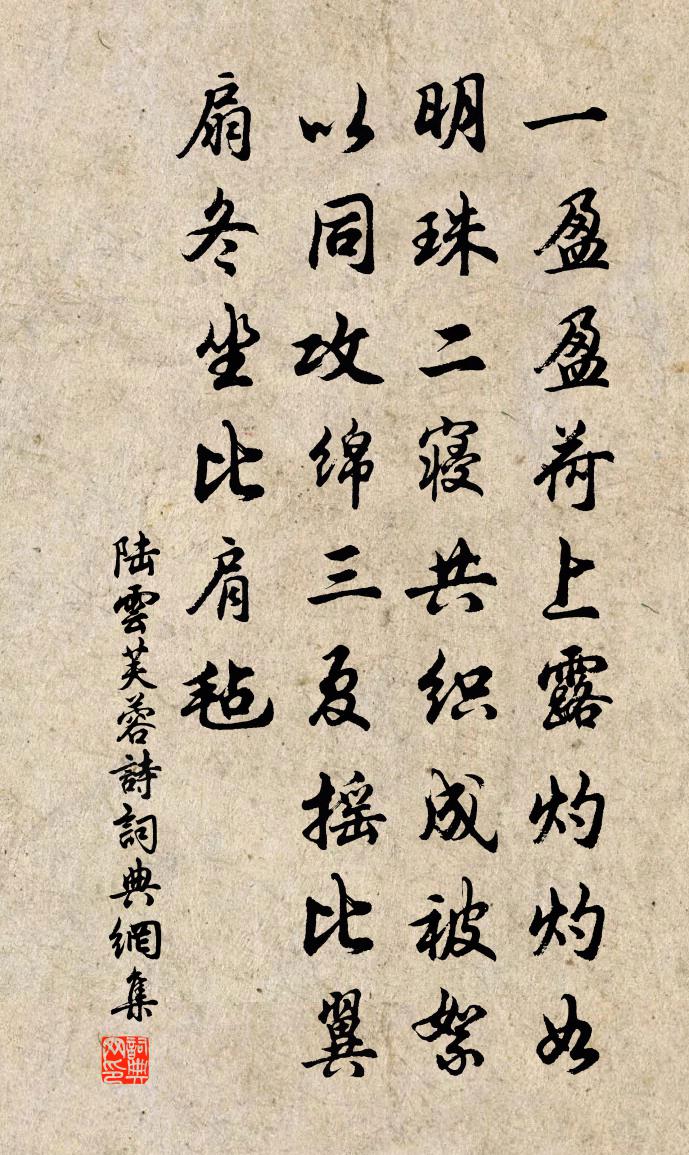 一盈盈荷上露灼灼如
明珠二寝共织成被絮
以同攻绵三夏摇比翼
扇冬坐比肩毡
陆雲芙蓉詩詞典網集
詞典网印